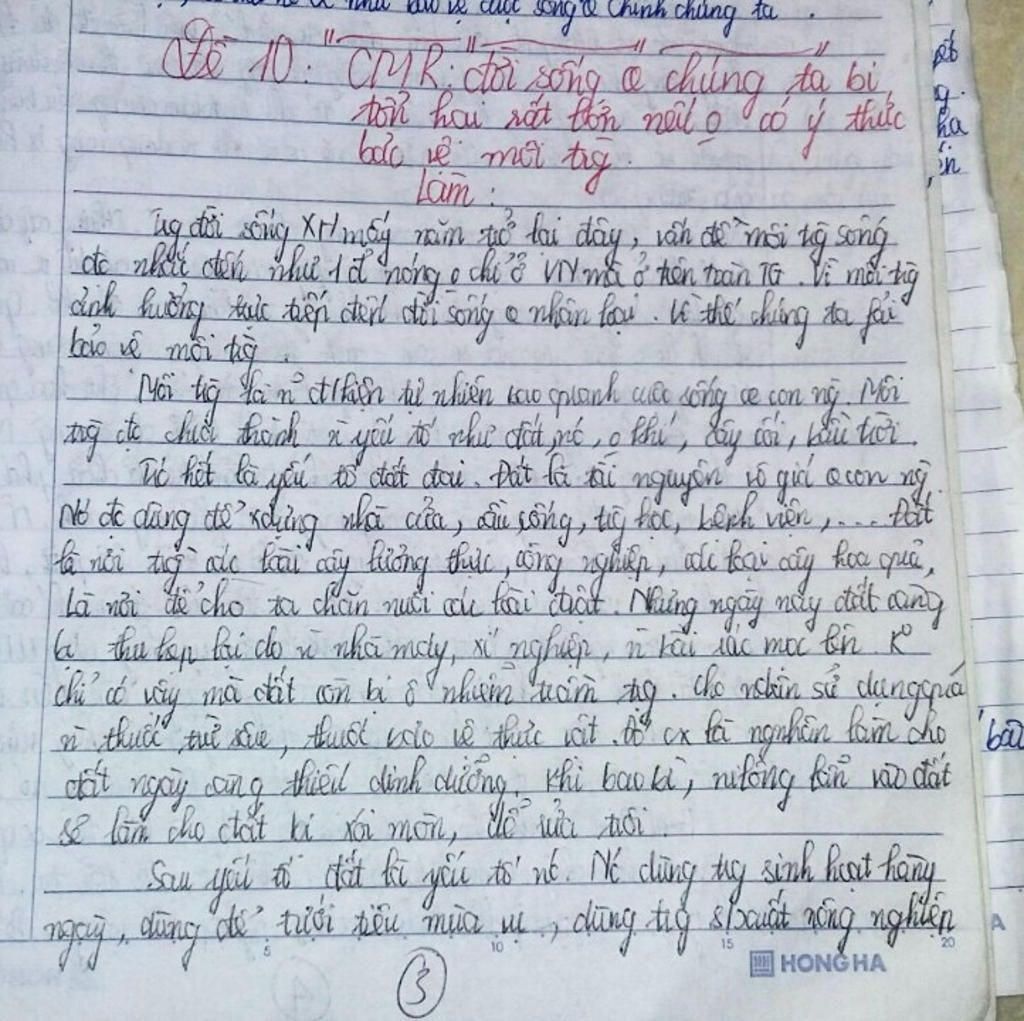 như bảo vệ cuộc sống @ chính chúng ta.
Đề 10: "CMR: đời sống @ chúng ta bị
tổn hại rất lớn nếu o có ý thức
bảo vệ môi trg
Làm:
Trg đời sống XH mấy năm trở lại đây, vấn đề môi trg sống
đc nhắc đến như 1 đ' nóng o chỉ ở VN mà ở trên toàn TG. Vì môi trg
ảnh hưởng trực tiếp đến đời sống @ nhân loại. Vì thế chúng ta fải
bảo vệ môi trg.
Môi trg là n~ đ/kiện tự nhiên bao quanh cuộc sống @ con ng. Môi
trg đc chia thành n~ yếu tố như đất, nc, o khí, cây cối, bầu trời.
Trc hết là yếu tố đất đai. Đất là tài nguyên vô giá @ con ng.
Nó đc dùng để xdựng nhà cửa, cầu cống, trg học, bệnh viện,.... Đất
là nơi trg các loài cây lương thực, công nghiệp, các loại cây hoa quả,
Là nơi để cho ta chăn nuôi các loài đ.vật. Nhưng ngày nay đất càng
bị thu hẹp lại do n~ nhà máy, xí nghiệp, n~ bãi rác mọc lên. K
chỉ có vậy mà đất còn bị ô nhiễm trầm trg. Cho nên sử dụng quá
n` thuốc trừ sâu, thuốc bảo vệ thực vật. Đó cx là ng nhân làm cho
đất ngày càng thiếu dinh dưỡng. Khi bao bì, nilông lẫn vào đất
sẽ làm cho đất bị xói mòn, dễ rửa trôi
Sau yếu tố đất là yếu tố nc. Nc dùng trg sinh hoạt hàng
ngày, dùng để tưới tiêu mùa vụ, dùng trg s/xuất nông nghiệp
3
5 10 15 20
HONG HA